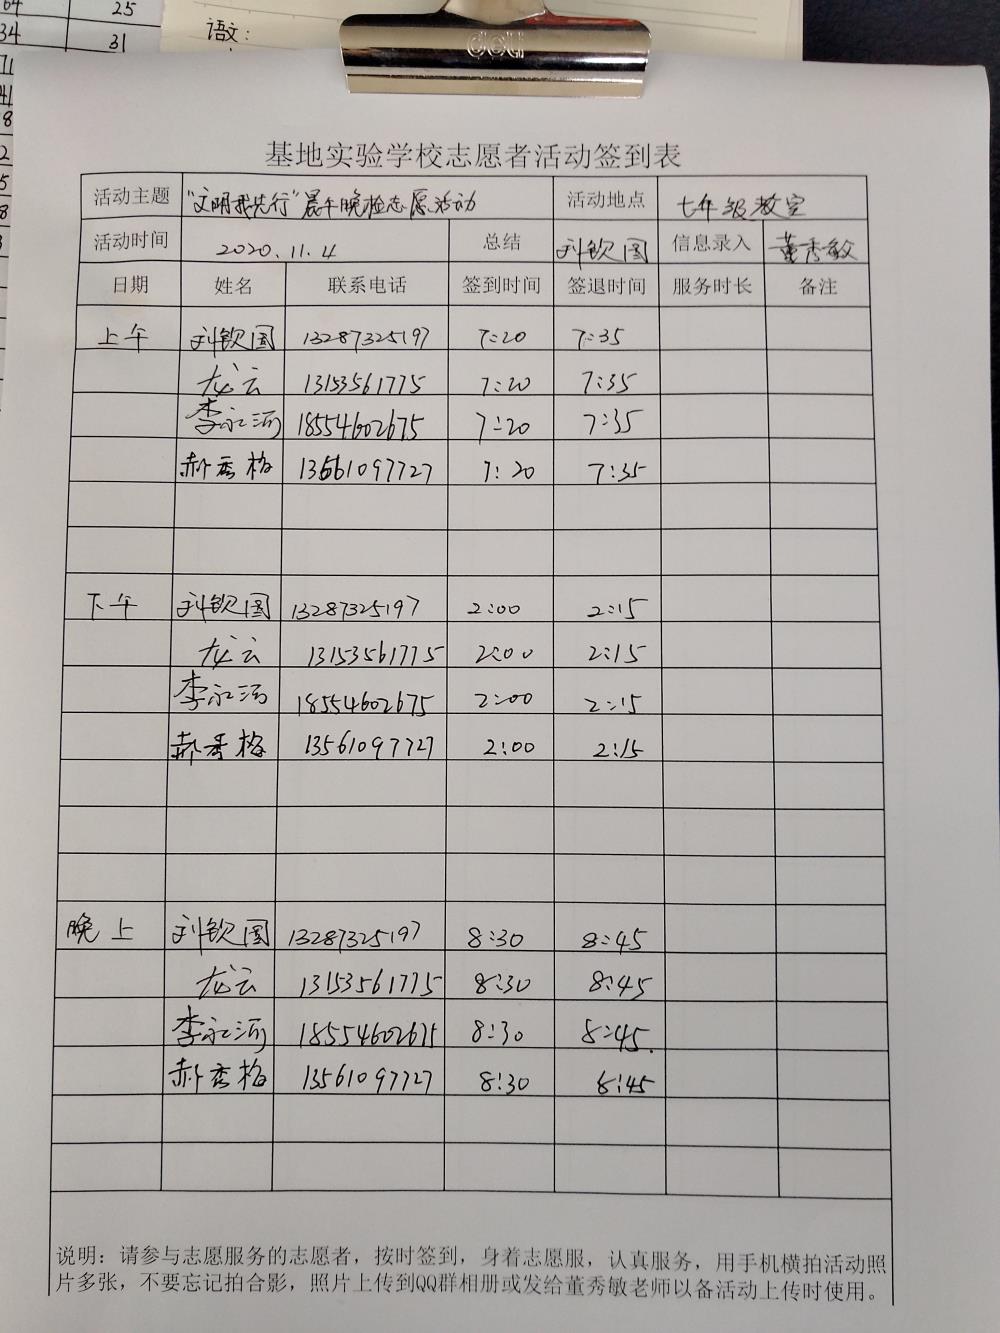 64 25
34 31
语文:
deli
基地实验学校志愿者活动签到表
活动主题 "文明我先行"晨午晚检志愿活动 活动地点 七年级教室
活动时间 2020.11.4 总结 刘钦国 信息录入 董秀敏
日期 姓名 联系电话 签到时间 签退时间 服务时长 备注
上午 刘钦国 13287325197 7:20 7:35
龙云 13153561775 7:20 7:35
李永河 18554602675 7:20 7:35
郝秀梅 13561097727 7:20 7:35
下午 刘钦国 13287325197 2:00 2:15
龙云 13153561775 2:00 2:15
李永河 18554602675 2:00 2:15
郝秀梅 13561097727 2:00 2:15
晚上 刘钦国 13287325197 8:30 8:45
龙云 13153561775 8:30 8:45
李永河 18554602675 8:30 8:45.
郝秀梅 13561097727 8:30 8:45
说明：请参与志愿服务的志愿者，按时签到，身着志愿服，认真服务，用手机横拍活动照
片多张，不要忘记拍合影，照片上传到QQ群相册或发给董秀敏老师以备活动上传时使用。